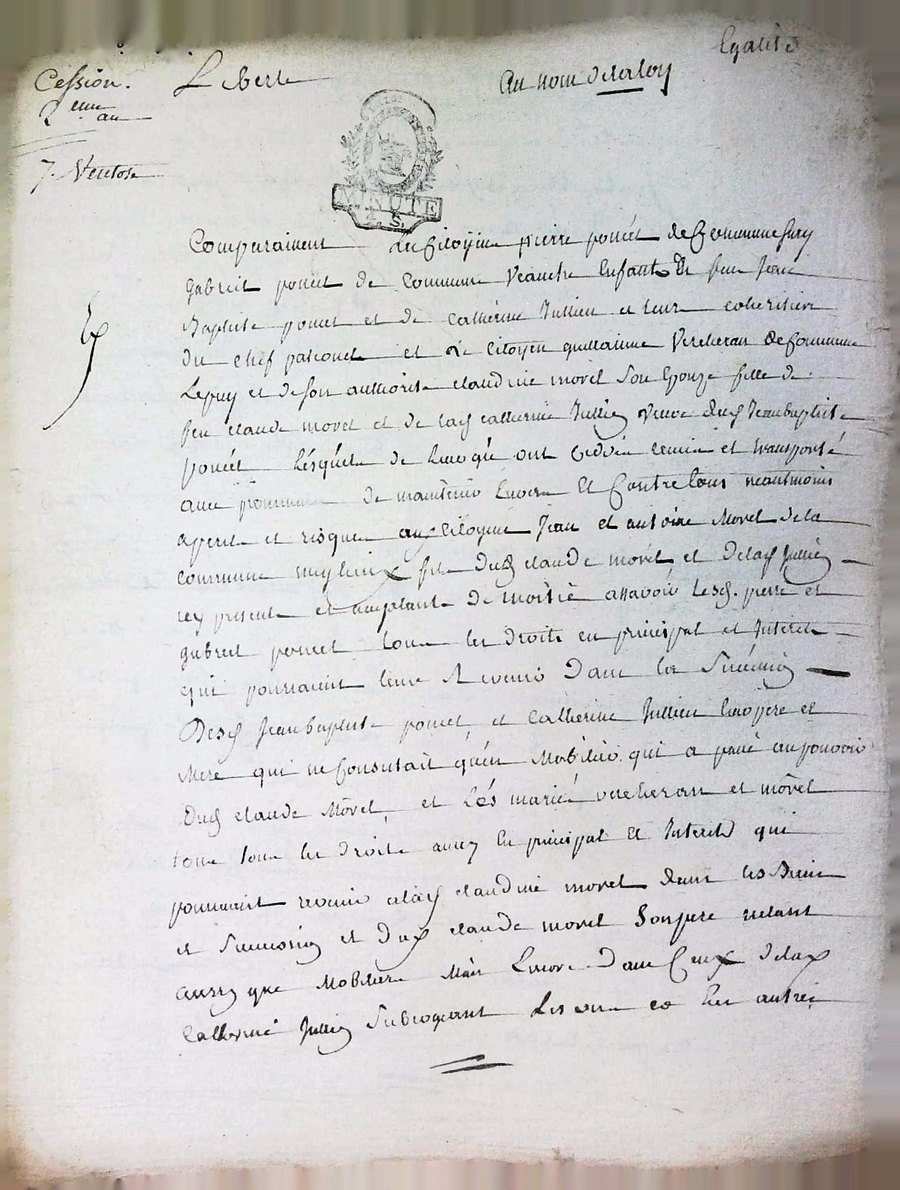 Cession.
Liberté
Au nom de la loy
Egalité
2 eme an
7. Ventose
MINUTE
4. S.
Comparaissent les Citoyens pierre pouët de Commune Jury
gabriel pouët de Commune Veauche Enfants de feu Jean
Baptiste pouet et de Catherine Jullien et leurs coheritiers
du chef et le Citoyen guillaume Vercheran de Commune
Lepuy et de son authorité claudine morel son Epouze fille de
feu claude morel et de lad catherine Jullien veuve dud Jeanbaptiste
pouët Lésquels de Leur gré ont ceddé remis et transporté
avec promesse de maintenir Envers Et Contre tous neantmoins
a perte et risque aux Citoyens Jean et antoine Morel de la
commune meylieux fils dud claude morel et delad Jullien
icy presents et acceptants de moitié assavoir Lesd. pierre et
gabriel pouet tous les droits en principal et Interets
qui pourraient leur Revenir Dans les Successions
Desd Jeanbaptiste pouet, et Catherine Jullien Leurs pere et
Mere qui ne Consistait qu'en Mobilier qui a passé au pouvoir
Dud claude Morel, et Lés mariés vercheran et morel
tous tous les droits aussy En principal Et Interets qui
pourraient revenir alad claudine morel dans les Biens
et Succession et Dud claude morel Son pere netant
aussy que Mobiliers Mais Encore Dans Ceux delad
Catherine Jullien Subrogeant Les uns et les autres